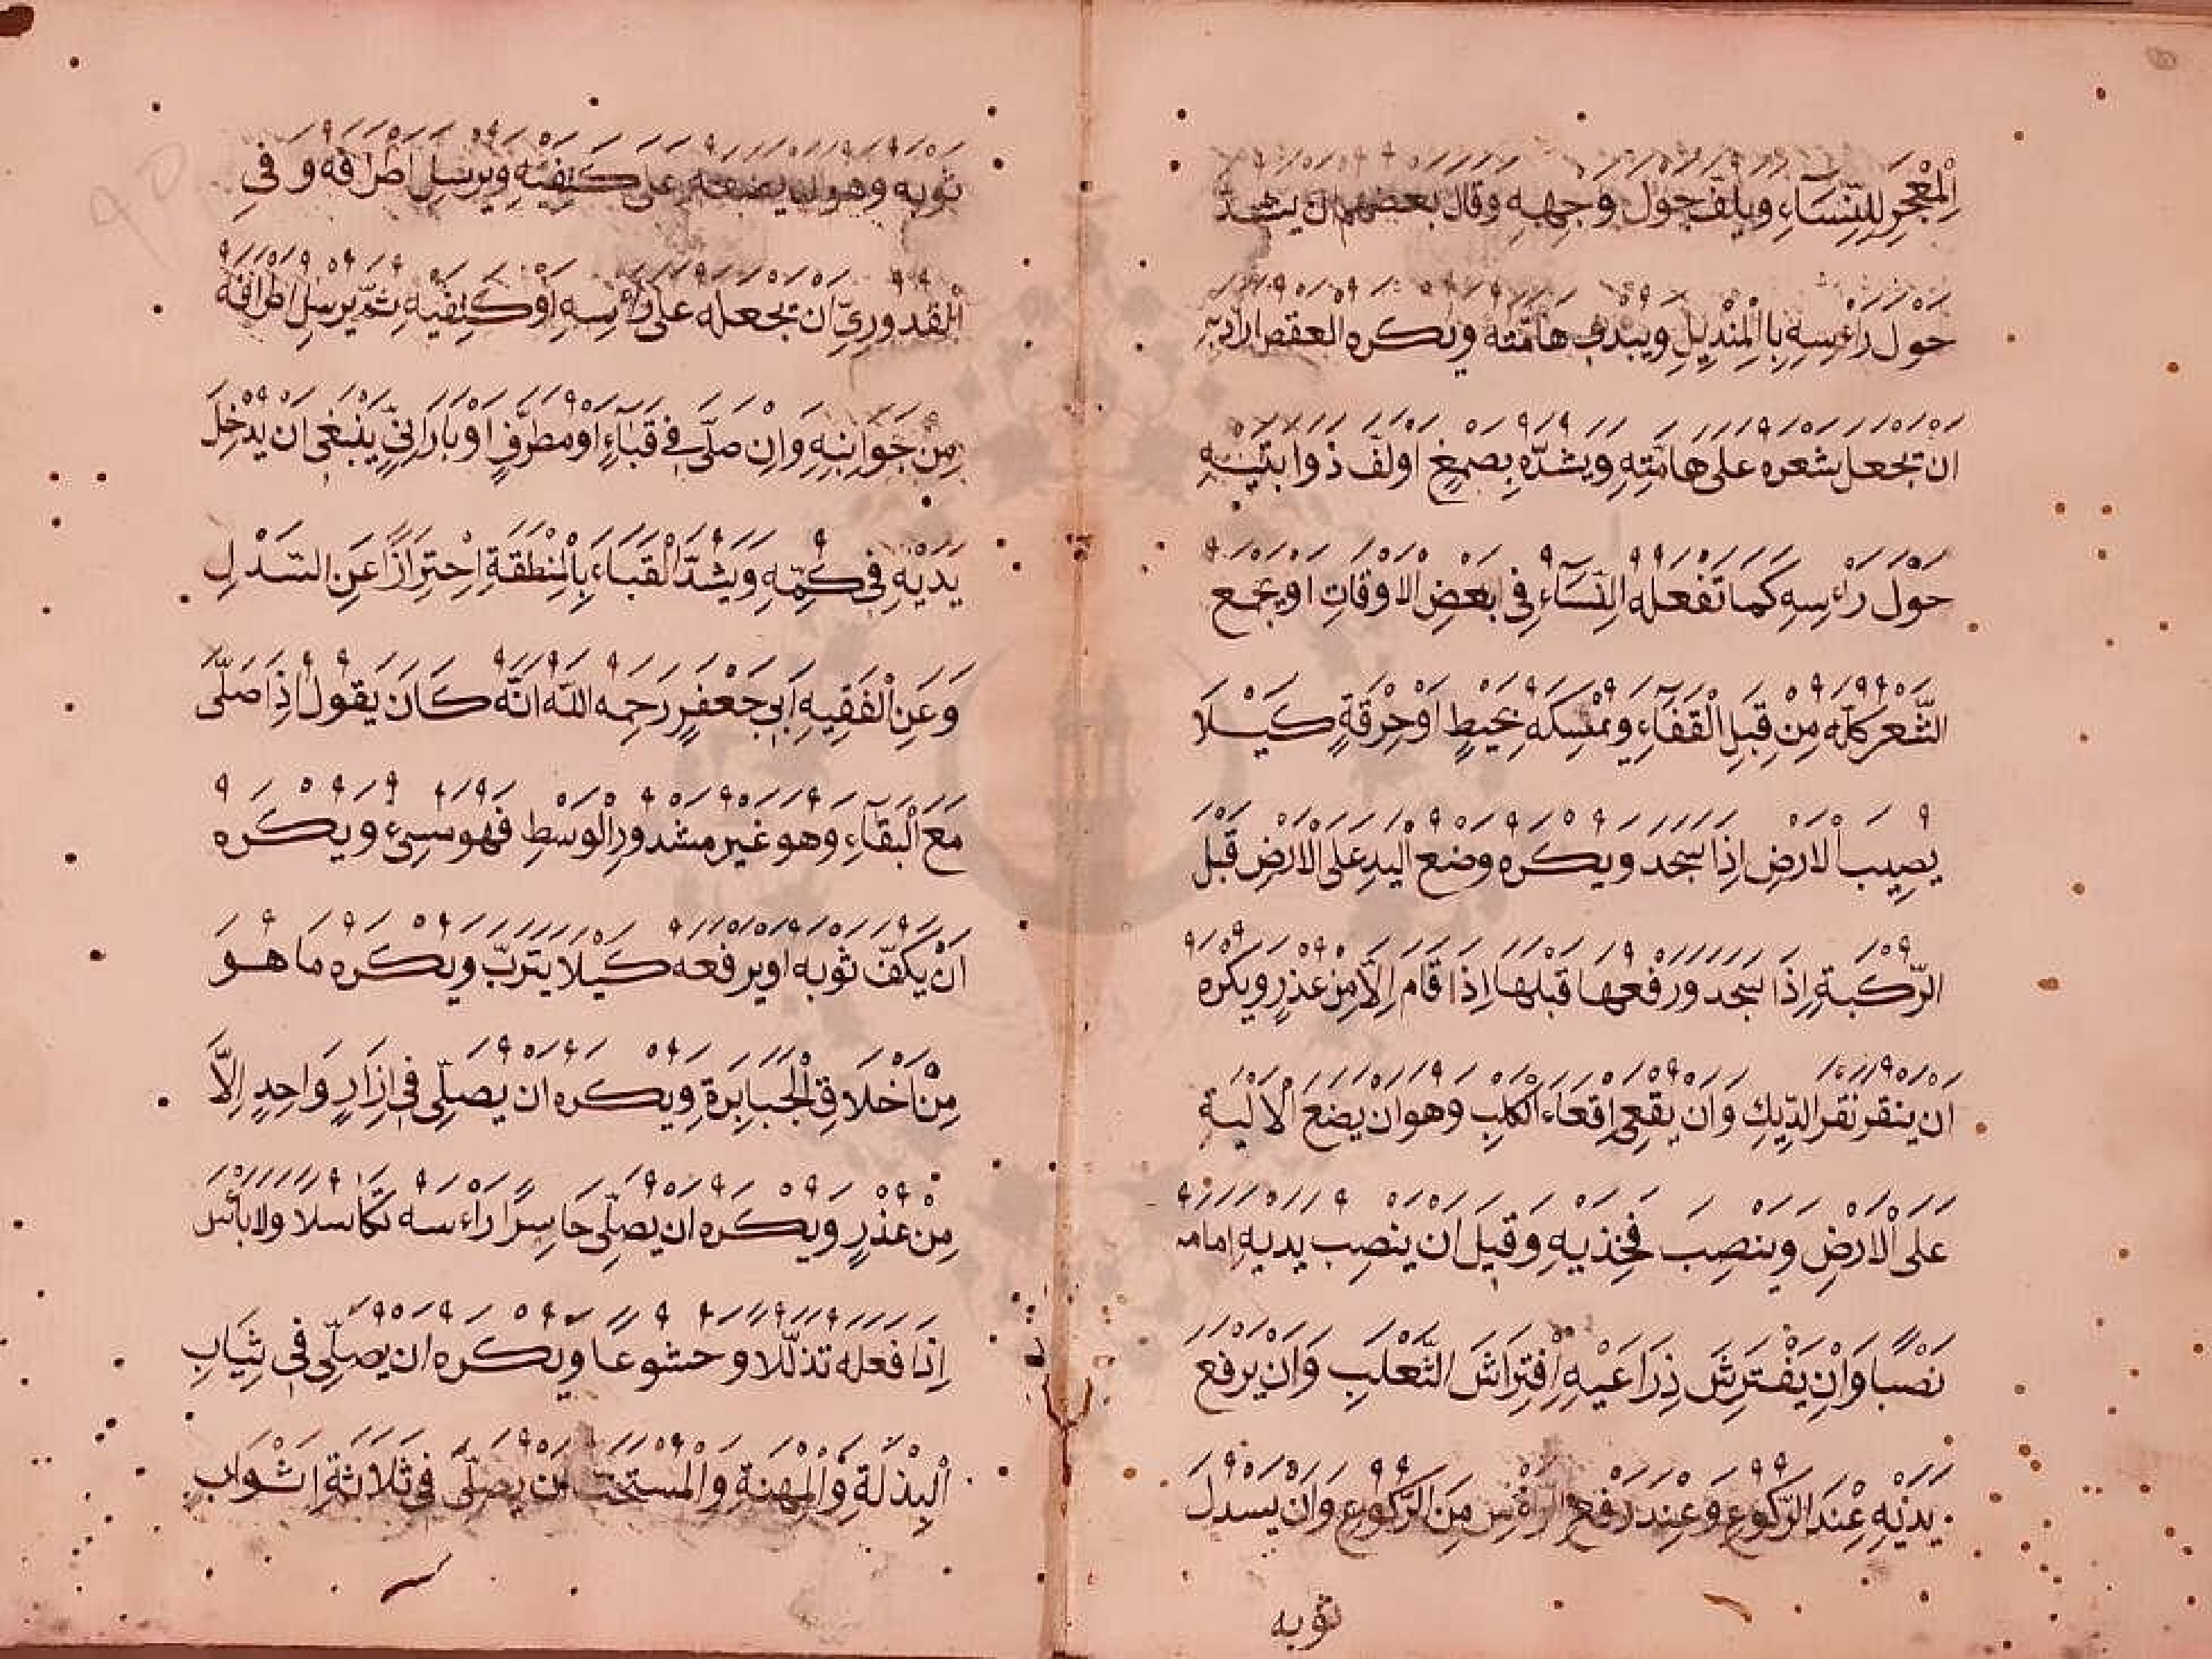 الْمِعْجَرِ لِلنِّسَاءِ وَيَلُفَّ حَوْلَ وَجْهِهِ وَقَالَ بَعْضُهُمْ اَنْ يَشُدَّ
حَوْلَ رَاءْسِهِ بِاالْمِنْدِيلِ وَيُبْدِىَ هَامَّتَهُ وَيُكْرَهُ العَقْصُ اَرَادَ بِهِ
اَنْ يَجْعَلَ شَعْرَهُ عَلَى هَامَّتِهِ وَيَشُدَّهُ بِصَمْغٍ اَوْ لَفَّ ذَوَابَتَيْهِ
حَوْلَ رَاءْسِهِ كَمَا تَفْعَلُهُ النِّسَاءُ فِى بَعْضِ الاَوْقَاتِ اَوْ يَجْمَعَ
الشَّعْرَ كُلَّهُ مِنْ قِبَلِ الْقَفَاءِ وَيُمْسِكَهُ بِخَيْطٍ اَوْ خِرْقَةٍ كَيْلَا
يُصِيبَ الاَرْضَ اِذَا سَجَدَ وَيُكْرَهُ وَضْعُ الْيَدِ عَلَى الاَرْضِ قَبْلَ
الرُّكْبَةِ اِذَا سَجَدَ وَرَفْعُهَا قَبْلَهَا اِذَا قَامَ اِلَّا مِنْ عُذْرٍ وَيُكْرَهُ
اَنْ يَنْقُرَ نَقْرَ الدِّيكِ وَاَنْ يُقْعِىَ اِقْعَاءَ الْكَلْبِ وَهُوَ اَنْ يَضَعَ الاَلْيَةِ
عَلَى الْاَرْضِ وَيَنْصِبَ فَخِذَيْهِ وَقِيلَ اَنْ يَنْصِبَ يَدَيْهِ اِمَامَهُ
نَصْبًا وَاَنْ يَفْتَرِشَ ذِرَاعَيْهِ اِفْتِرَاشَ الثَّعْلَبِ وَاَنْ يَرْفَعَ
يَدَيْهِ عِنْدَ الرُّكُوعِ وَعِنْدَ رَفْعِ الرَّاءْسِ مِنَ الرُّكُوعِ وَاَنْ يَسْدُلَ
ثوبه
ثَوْبَهُ وَهُوَ اَنْ يَضَعَهُ عَلَى كَتِفَيْهِ وَيُرْسِلَ اَطْرَافَهُ وَفِى
الْقُدُورِىِّ اَنْ يَجْعَلَهُ عَلَى رَاءْسِهِ اَوْ كَتِفَيْهِ ثُمَّ يُرْسِلَ اَطْرَافَهُ
مِنْ جَوَانِبِهِ وَاِنْ صَلَّى فِى قَبَاءٍ اَوْ مُطَرَّفٍ اَوْ بَارَانِىٍّ يَنْبَغِى اَنْ يُدْخِلَ
يَدَيْهِ فِى كُمِّهِ وَيَشُدَّ الْقَبَاءَ بِالْمِنْطَقَةِ اِحْتِرَازًا عَنِ السَّدْلِ
وَعَنِ الْفَقِيهِ اَبِى جَعْفَرٍ رَحِمَهُ اللّٰه اَنَّهُ كَانَ يَقُولُ اِذَا صَلَّى
مَعَ الْبَقَاءِ وَهُوَ غَيْرُ مَشْدُودِ الْوَسْطِ فَهُوَ سِىءٌ وَيُكْرَهُ
اَنْ يَكُفَّ ثَوْبَهُ اَوْ يَرْفَعَهُ كَيْلَا يَتَرَبَّ وَيُكْرَهُ مَا هُوَ
مِنْ اَخْلَاقِ الْجَبَابِرَةِ وَيُكْرَهُ اَنْ يُصَلِّى فِى اِزَارٍ وَاحِدٍ اِلَّا
مِنْ عُذْرٍ وَيُكْرَهُ اَنْ يُصَلِّى حَاسِرًا رَاءْسَهُ تَكَاسُلًا وَلَا بَاءْسَ
اِذَا فَعَلَهُ تَذَلُّلًا وَخُشُوعًا وَيُكْرَهُ اَنْ يُصَلِّى فِى ثِيَابِ
الْبِذْلَةِ وَالْمِهْنَةِ وَالْمُسْتَحَبُّ اَنْ يُصَلِّى فِى ثَلَاثَةِ اَثْوَابٍ